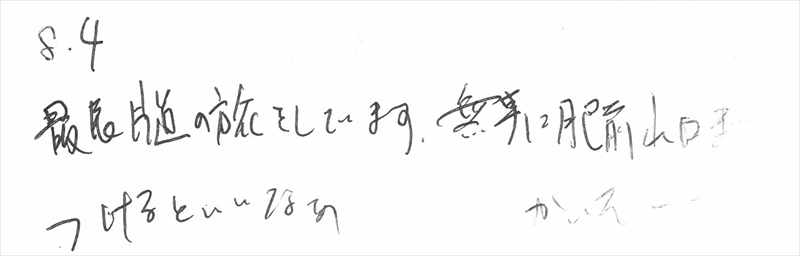 8.4
最長片道の旅をしています。無事に肥前山口ま
つけるといいなあ